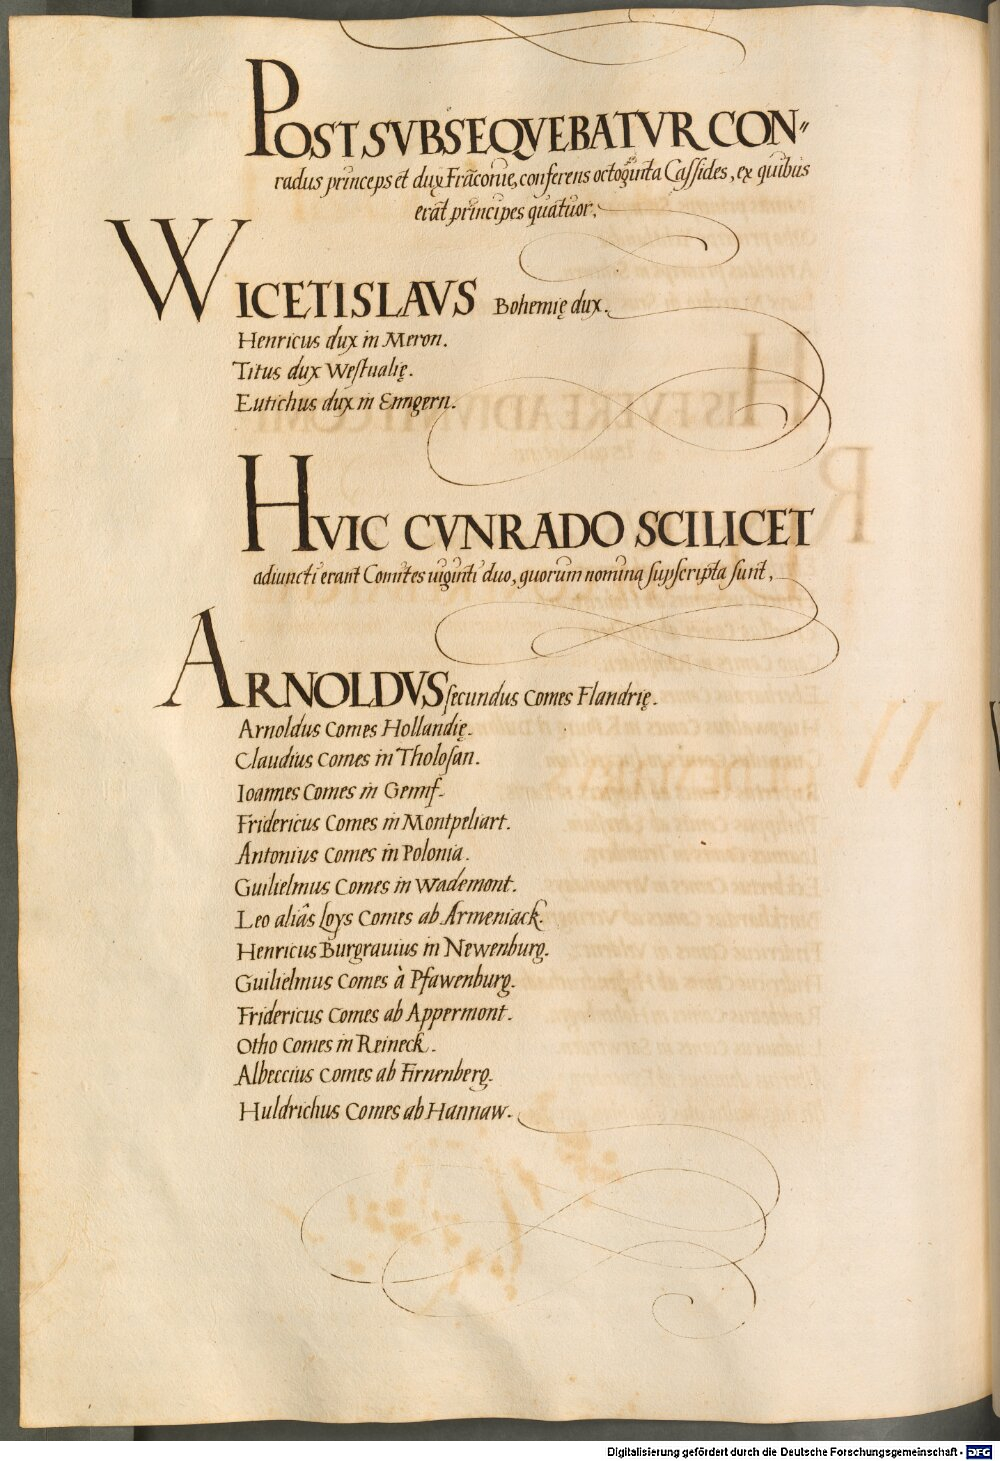 POST SVBSEQVEBATVR CON-
radus princeps et dux Frāconię, conferens octogĩnta Cassides, ex quibus
erāt principes quatuor.
WICETISLAVS Bohemię dux.
Henricus dux in Meron.
Titus dux Westualię.
Eutichus dux in Enngern.
HVIC CVNRADO SCILICET
adiuncti erant Comites uiginti duo, quorum nomina supscripta sunt,
ARNOLDVS secundus Comes Flandrię.
Arnoldus Comes Hollandię.
Claudius Comes in Tholosan.
Ioannes Comes in Gennf.
Fridericus Comes in Montpeliart.
Antonius Comes in Polonia.
Guilielmus Comes in Wademont.
Leo aliâs Loys Comes ab Armeniack.
Henricus Burgrauius in Newenburg.
Guilielmus Comes à Pfawenburg.
Fridericus Comes ab Appermont.
Otho Comes in Reineck.
Albeccius Comes ab Firnenberg.
Huldrichus Comes ab Hannaw.
Digitalisierung gefördert durch die Deutsche Forschungsgemeinschaft - DFG